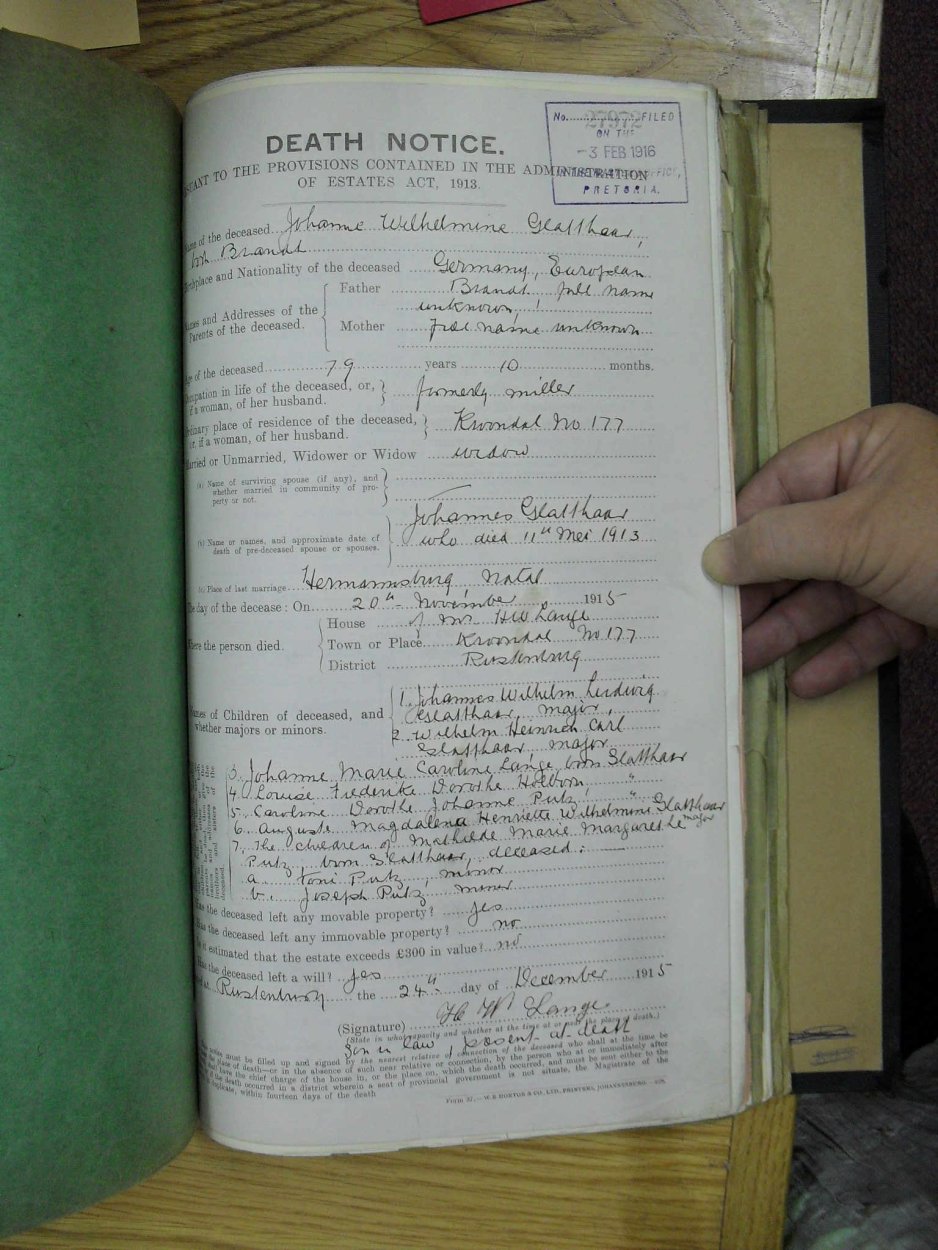 No. 27972 FILED
ON THE
-3 FEB 1916
PRETORIA.
DEATH NOTICE.
TO THE PROVISIONS CONTAINED IN THE ADMINISTRATION
OF ESTATES ACT, 1913.
Name of the deceased Johanne Wilhelmine Glatthaar,
born Brandt
Birthplace and Nationality of the deceased Germany, European
Names and Addresses of the Parents of the deceased.
Father Brandt full name
unknown,
Mother full name unknown
Age of the deceased 79 years 10 months.
Occupation in life of the deceased, or, if a woman, of her husband. formerly miller
Ordinary place of residence of the deceased, or, if a woman, of her husband. Kroondal No 177
Married or Unmarried, Widower or Widow widow
(a) Name of surviving spouse (if any), and whether married in community of property or not.
(b) Name or names, and approximate date of death of pre-deceased spouse or spouses.
Johannes Glatthaar
who died 11th Mei 1913
(c) Place of last marriage Hermannsburg, Natal
The day of the decease: On 20th November 1915
Where the person died.
House of Mr H W Lange
Town or Place Kroondal No 177
District Rustenburg
Names of Children of deceased, and whether majors or minors.
1. Johannes Wilhelm Ludwig
Glatthaar, major,
2. Wilhelm Heinrich Carl
Glatthaar, major
3. Johanne Marie Caroline Lange born Glatthaar
4. Louise Frederike Dorothe Holborn, "
5. Caroline Dorothe Johanne Putz, "
6. Auguste Magdalena Henriette Wilhelmine Glatthaar
major
7. The children of Mathilde Marie Margarethe
Putz, born Glatthaar, deceased:
a. Toni Putz, minor
b. Joseph Putz minor
Has the deceased left any movable property? yes
Has the deceased left any immovable property? no
Is it estimated that the estate exceeds £300 in value? no
Has the deceased left a will? yes
Dated at Rustenburg the 24th day of December 1915
(Signature) H W Lange
(State in what capacity and whether at the time at or near the place of death.)
Son in law, present at death
notice must be filled up and signed by the nearest relative or connection of the deceased who shall at the time be
the place of death—or in the absence of such near relative or connection, by the person who at or immediately after
have the chief charge of the house in, or the place on, which the death occurred, and must be sent either to the
the death occurred in a district wherein a seat of provincial government is not situate, the Magistrate of the
duplicate, within fourteen days of the death
Form 37.—W. E. HORTOR & CO. LTD. PRINTERS, JOHANNESBURG.